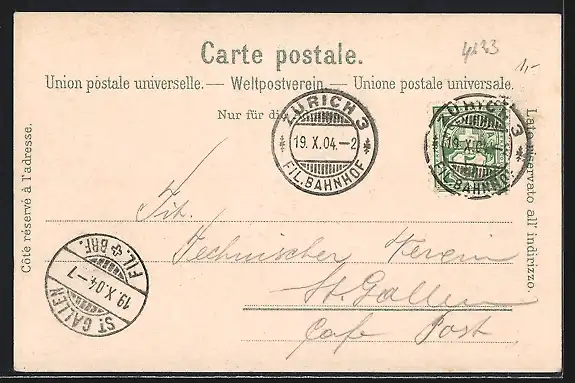 4133
1,-
Carte postale.
Union postale universelle. — Weltpostverein — Unione postale universale.
Nur für die
ZÜRICH 3
19. X. 04. — 2
FIL. BAHNHOF
ZÜRICH 3
19. X. 04. —
FIL. BAHNHOF
Côté réservé à l'adresse.
Lato riservato all' indirizzo.
Tit.
Technischer Verein
St. Gallen
Cafe Post
FIL. BRF.
19 X. 04. — 7
ST. GALLEN